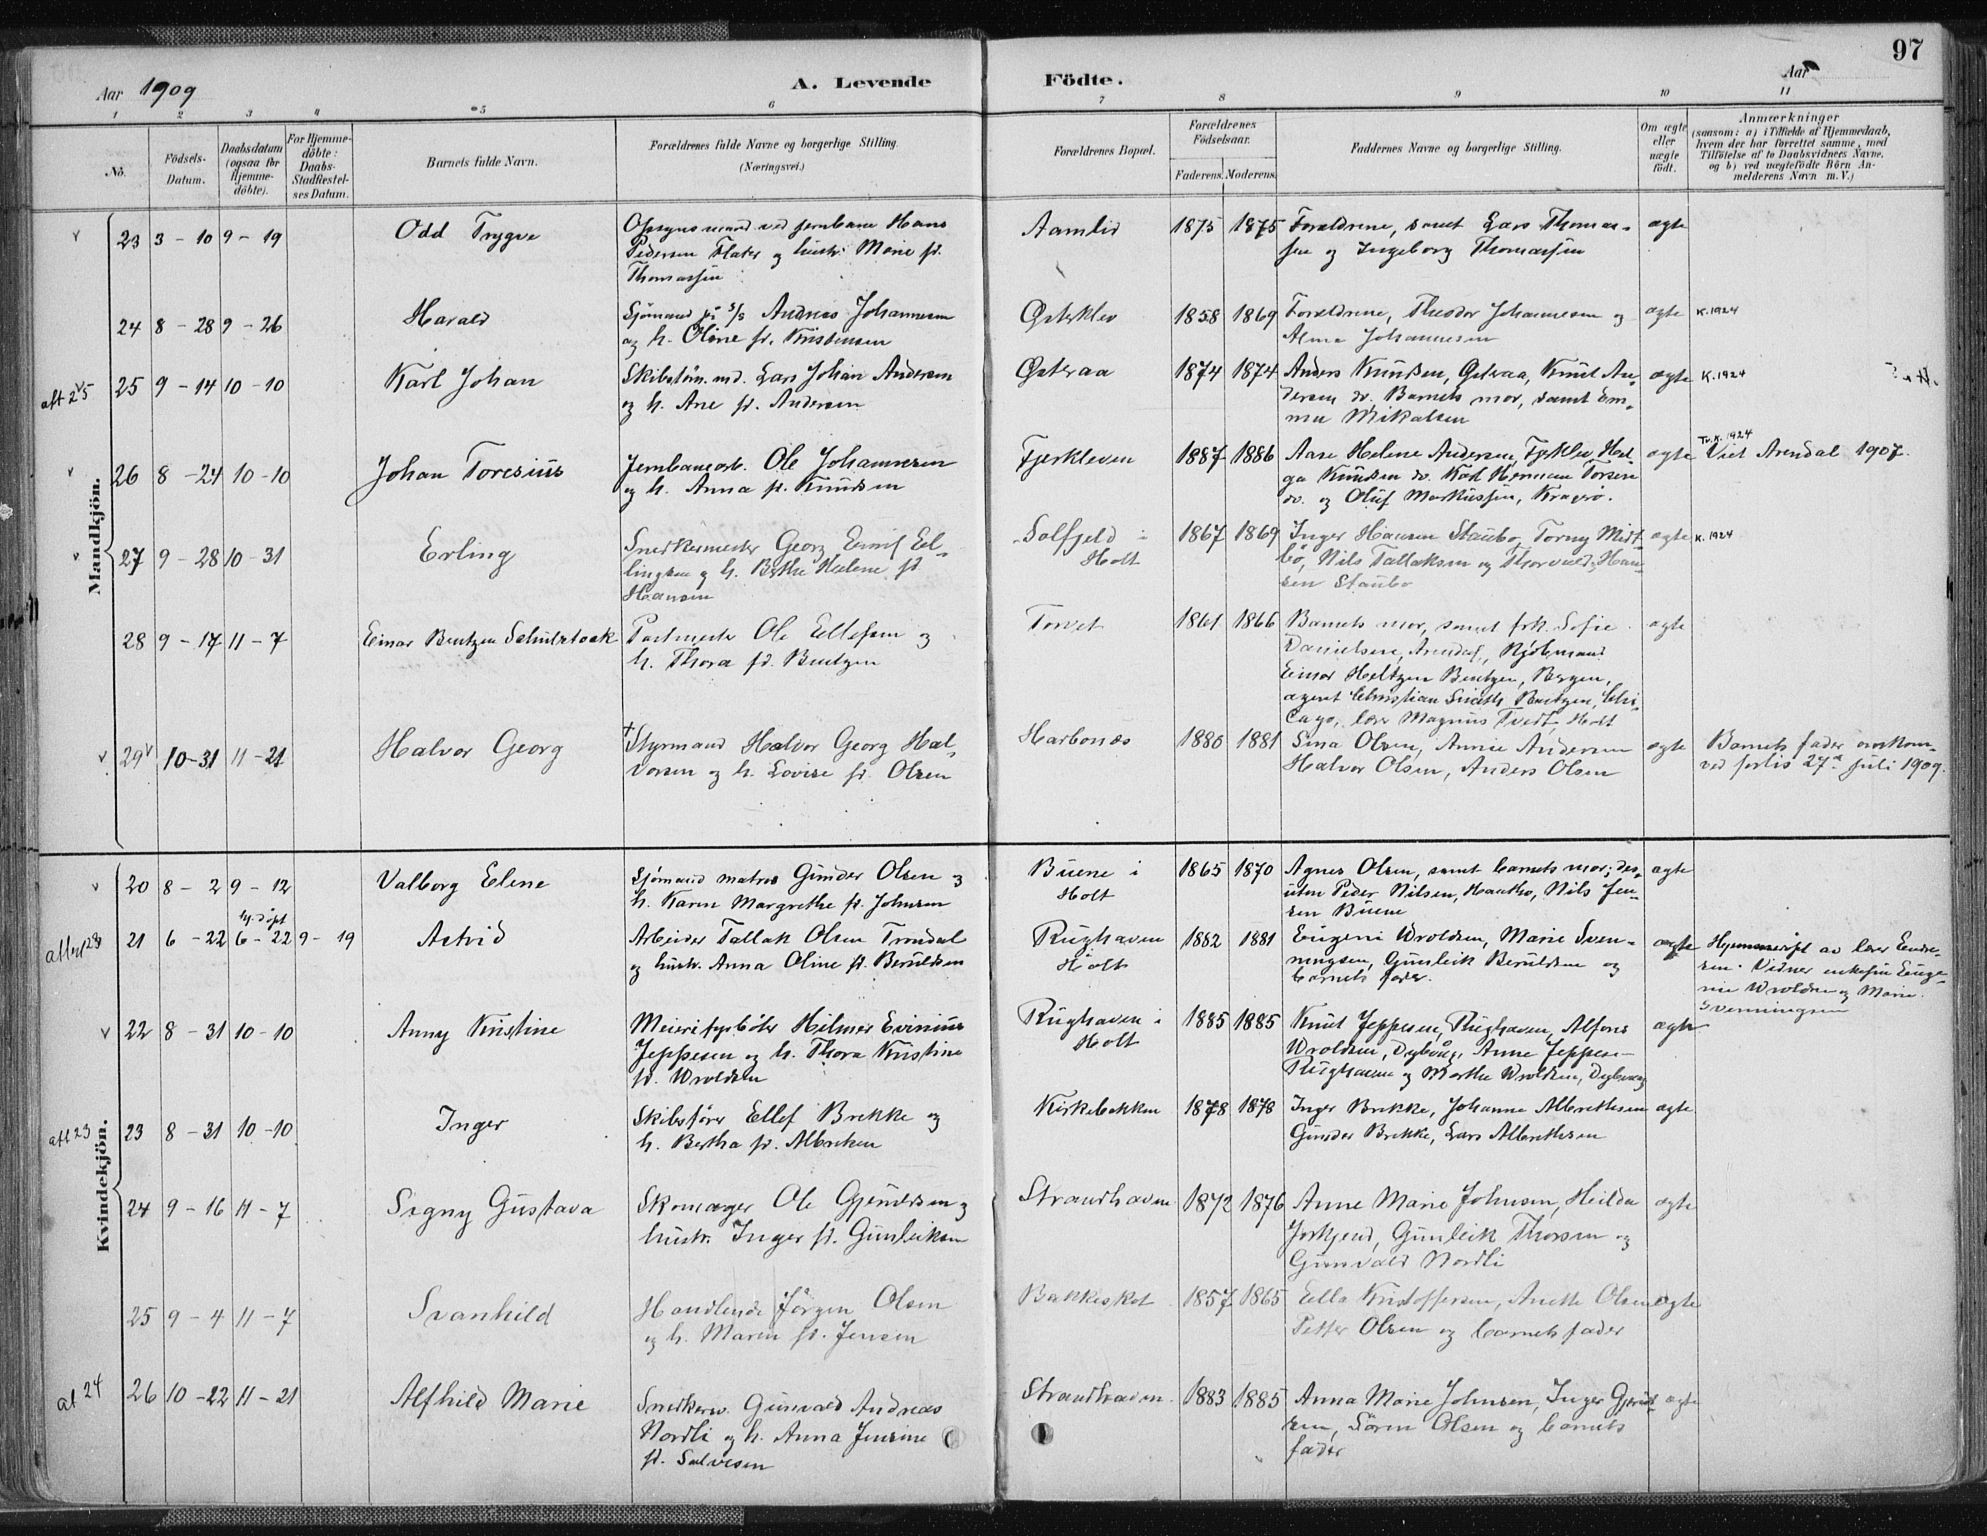 97
Aar 1909
A. Levende
Födte.
Aar
1 2 3 4 5 6 7 8 9 10 11
No.
Födsels-Datum.
Daabsdatum (ogsaa for Hjemme-döbte).
For Hjemme-döbte: Daabs-Stadfæstel-ses Datum.
Barnets fulde Navn.
Forældrenes fulde Navne og borgerlige Stilling.
(Næringsvei.)
Forældrenes Bopæl.
Forældrenes Födselsaar.
Faderens. Moderens.
Faddernes Navne og borgerlige Stilling.
Om ægte eller uægte födt.
Anmærkninger
(saasom: a) i Tilfælde af Hjemmedaab,
hvem der har forrettet samme, med
Tilföielse af to Daabsvidners Navne,
og b) ved uægtefödte Börn An-
melderens Navn m. V.)
Mandkjön.
23 3 - 10 9 - 19 Odd Trygve
Opsynsmand ved jernbane Hans
Pedersen Flater og hustr. Marie f.
Thomassen
Aamlid 1875 1875
Forældrene, samt Lars Thomas-
sen og Ingeborg Thomassen
ægte
24 8 - 28 9 - 26 Harald
Sjømand på S/S Andreas Johannesen
og h. Oline f. Kristensen
Østeklev 1858 1869
Forældrene, Theodor Johannesen og
Alma Johannesen
ægte K. 1924
aft 25
25 9 - 14 10 - 10 Karl Johan
Skibstøm.md. Lars Johan Andersen
og h. Ane f. Andersen
Østeraa 1874 1874
Anders Knudsen, Østeraa, Knut An-
dersen do. Barnets mor, samt Em-
ma Mikalsen
ægte K. 1924
26 8 - 24 10 - 10 Johan Toresius
Jernbanearb. Ole Johannesen
og h. Anna f. Knudsen
Fjerkleven 1887 1886
Aase Helene Andersen, Fjerklev, Hel-
ga Knudsen do. Karl Herman Torsen
do. og Oluf Markussen, Kragerø.
ægte
Tv.K. 1924
Viet Arendal 1907.
27 9 - 28 10 - 31 Erling
Snedkermester Georg Emil El-
lingsen og h. Berthe Helene f.
Hansen
Solfjeld i
Holt
1867 1869
Inger Hansen Staubo, Torny Midt-
bö, Nils Tallaksen og Thorvald Han-
sen Staubo
ægte K. 1924
28 9 - 17 11 - 7 Einar Bentzen
Postmester Ole Ellefsen og
h. Thora f. Bentzen
Torvet 1861 1866
Barnets mor, samt frk. Sofie
Danielsen, Arendal, Kjöbmand
Einar Heltzen Bentzen, Bergen,
agent Christian Smith Bentzen, Chi-
cago, lærer Magnus Tvedt, Holt
ægte
29 10 - 31 11 - 21 Halvor Georg
†Styrmand Halvor Georg Hal-
vorsen og h. Lovise f. Olsen
Harbonæs 1880 1881
Sina Olsen, Annie Andersen
Halvor Olsen, Anders Olsen
ægte
Barnets fader omkom
ved forlis 27de juli 1909.
Kvindekjön.
20 8 - 2 9 - 12 Valborg Elene
Sjømand matros Gunder Olsen og
h. Karen Margrethe f. Johnsen
Buene i
Holt
1865 1870
Agnes Olsen, samt barnets mor; des-
uten Peder Nilsen, Haukbo, Nils Jen-
sen Buene
ægte
hj. döpt
21 6 - 22 6 - 22 9 - 19 Astrid
Arbeider Tallak Olsen Trondal
og hustr. Anna Oline f. Beruldsen
Rughaven
Holt
1882 1881
Eugeni Wroldsen, Marie Sven-
ningsen, Gunleik Beruldsen og
barnets fader.
ægte
Hjemmedöpt av lærer Endre-
sen. Vidner enkefru Euge-
nie Wroldsen og Marie
Svenningsen
22 8 - 31 10 - 10 Anny Kristine
Meierifysböter Hilmer Evinius
Jeppesen og h. Thora Kristine
f. Wroldsen
Rughaven i
Holt
1885 1885
Knut Jeppesen, Rughaven, Alfons
Wroldsen, Dybvåg, Anne Jeppesen
Rughaven og Marthe Wroldsen, Dybvaag
ægte
aft 23
23 8 - 31 10 - 10 Inger
Skibsfører Ellef Brekke og
h. Bertha f. Albretsen
Kirkebakken 1878 1878
Inger Brekke, Johanne Albrethsen
Gunder Brekke, Lars Albrethsen
ægte
24 9 - 16 11 - 7 Signy Gustava
Skomager Ole Gjeruldsen og
hustr. Inger f. Gunleiksen
Strandhaven 1872 1876
Anne Marie Johnsen, Heilda
Jorkjend, Gunleik Thorsen og
Gunvald Nordli
ægte
25 9 - 4 11 - 7 Svanhild
Handlende Jörgen Olsen
og h. Maren f. Jensen
Bakkeskot 1857 1865
Ella Kristoffersen, Anette Olsen
Petter Olsen og barnets fader
ægte
26 10 - 22 11 - 21 Alfhild Marie
Snedkersv. Gunvald Andreas
Nordli og h. Anna Jensine
f. Salvesen
Strandhaven 1883 1885
Anna Marie Johnsen, Inger Gjeruld-
sen, Sören Olsen og barnets
fader
ægte